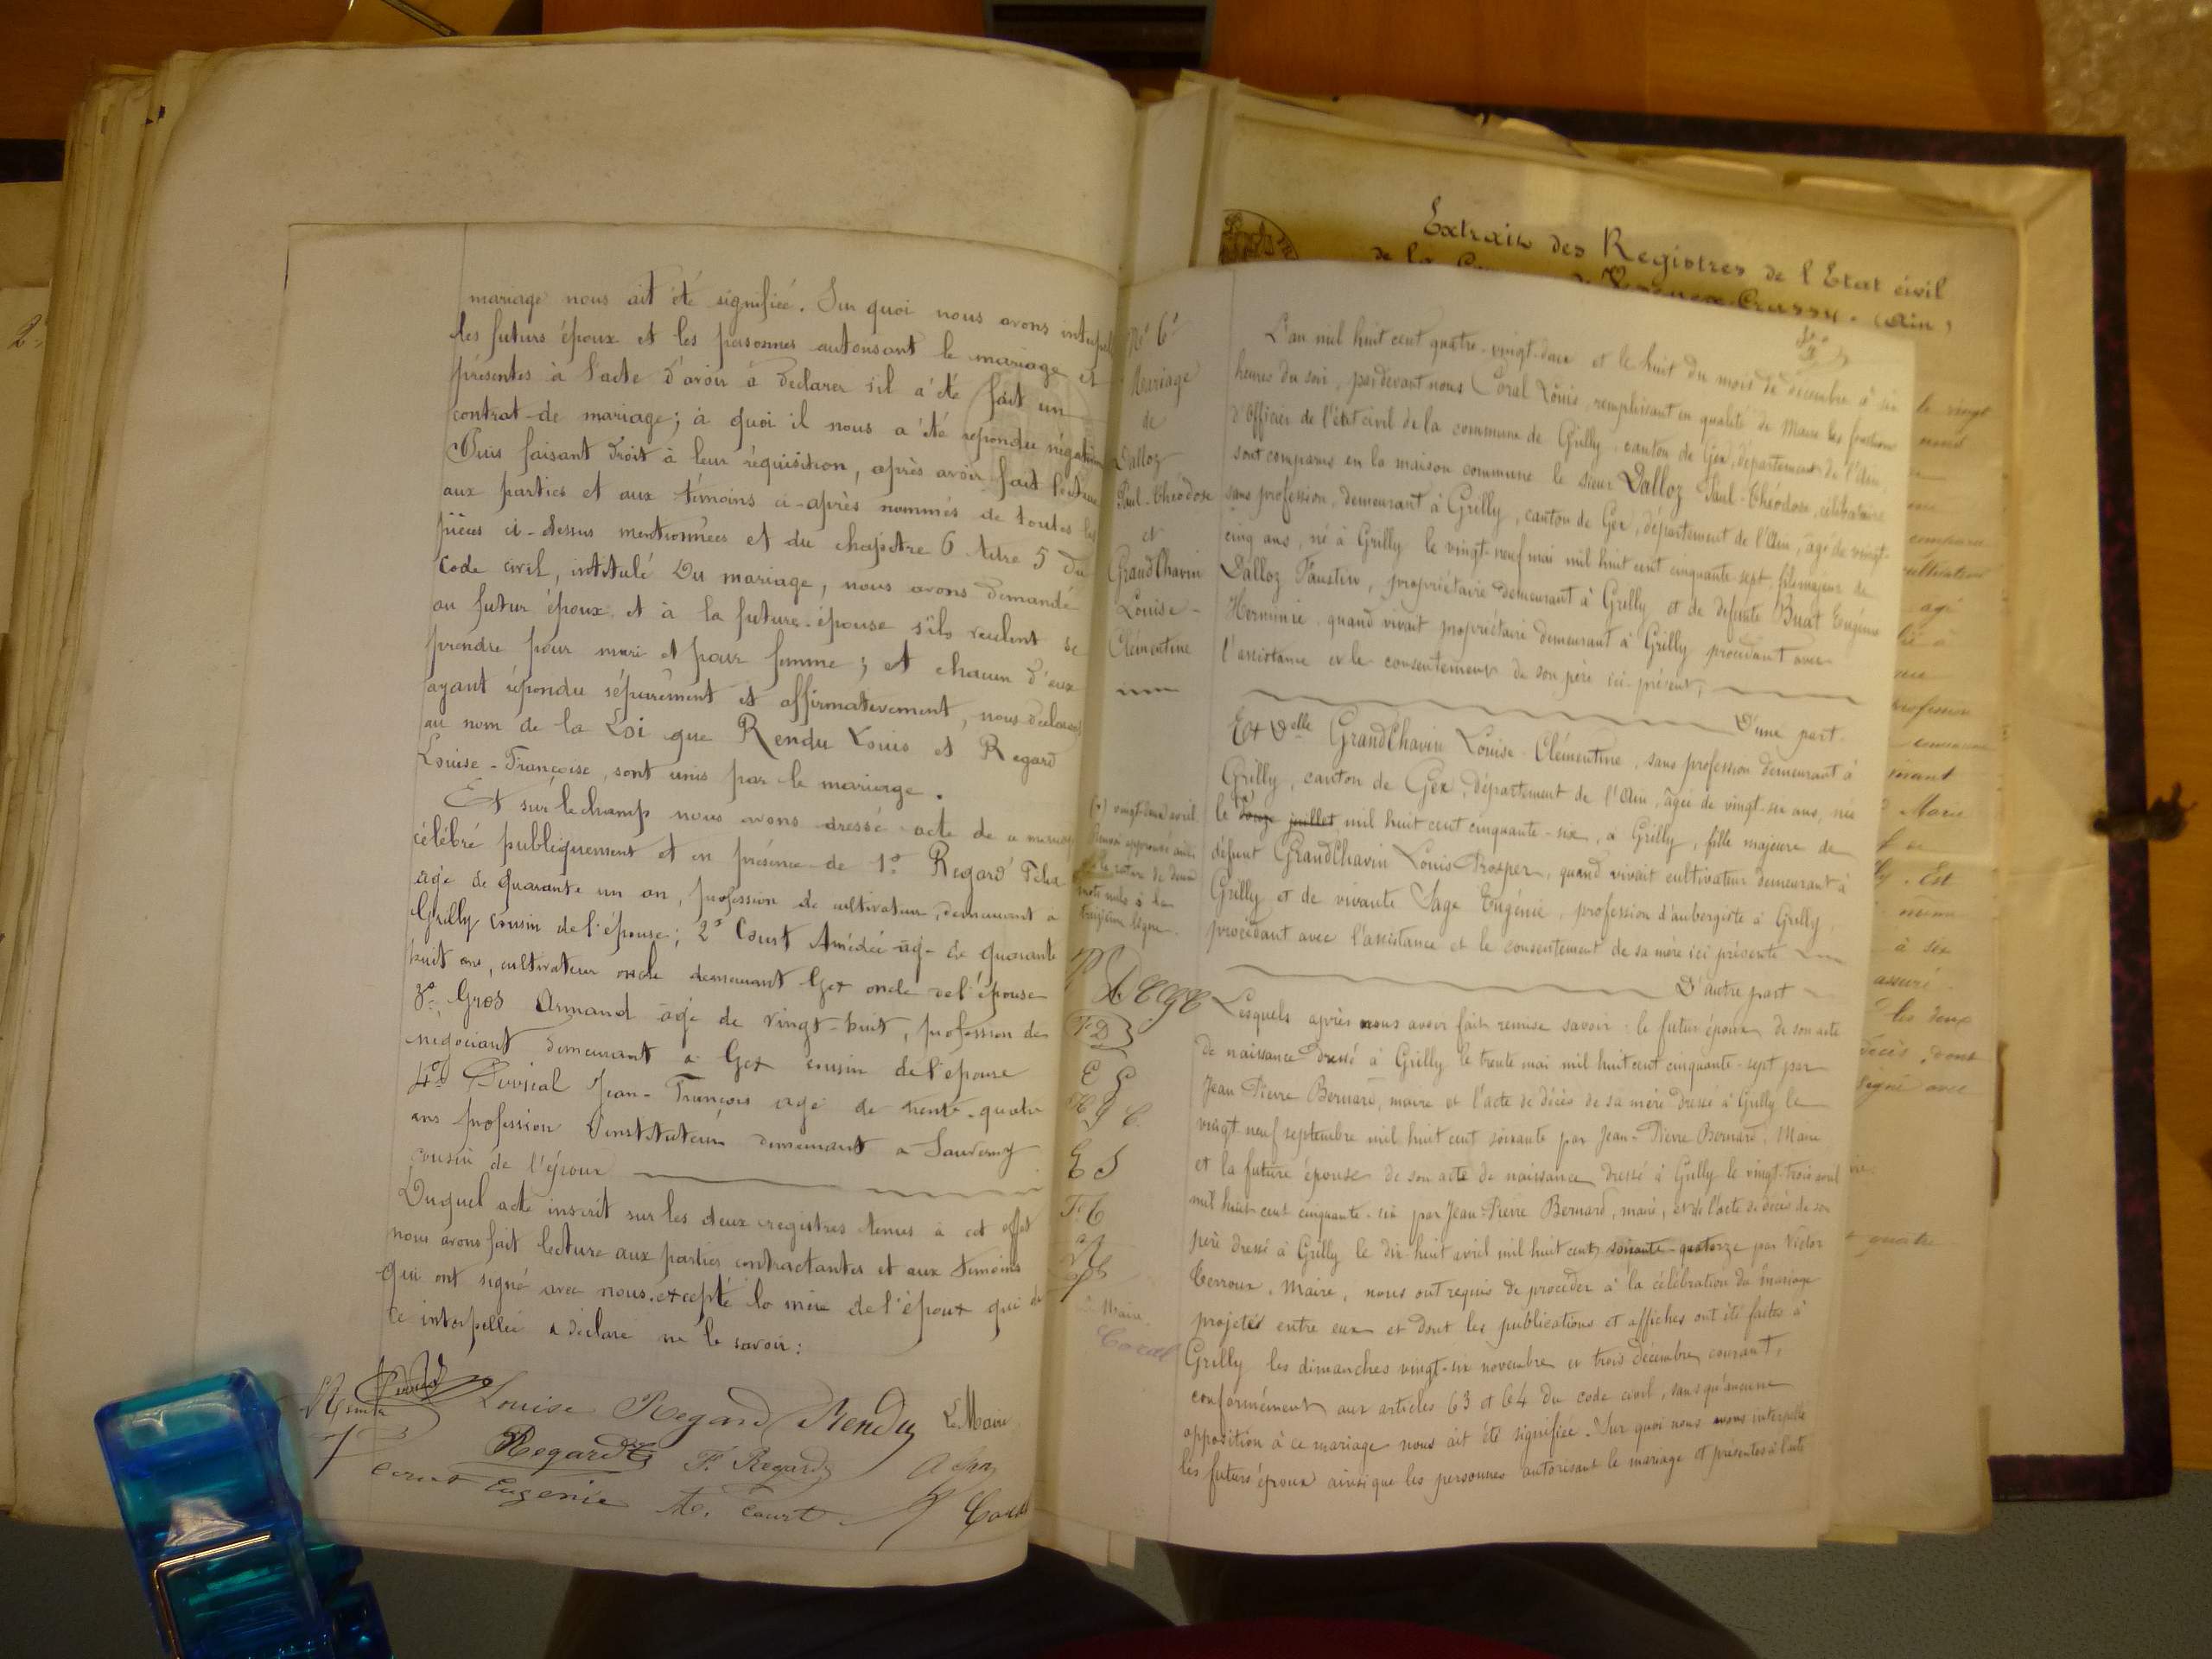 mariage nous ait été signifiée. Sur quoi nous avons interpel
les futurs époux et les personnes autorisant le mariage et
présentes à l'acte d'avoir à déclarer s'il a été fait un
contrat de mariage; à quoi il nous a été répondu négativem
Puis faisant droit à leur réquisition, après avoir fait lecture
aux parties et aux témoins ci-après nommés de toutes les
pièces ci-dessus mentionnées et du chapitre 6 titre 5 du
Code civil, intitulé Du mariage, nous avons demandé
au futur époux et à la future épouse s'ils veulent se
prendre pour mari et pour femme; et chacun d'eux
ayant répondu séparément et affirmativement, nous déclarons
au nom de la Loi que Rendu Louis et Regard
Louise-Françoise, sont unis par le mariage.
Et sur le champ nous avons dressé acte de ce mariage
célébré publiquement et en présence de 1° Regard Félix
agé de quarante un an, profession de cultivateur, demeurant à
Grilly cousin de l'épouse; 2° Court Amédée agé de quarante
huit ans, cultivateur oncle demeurant Gex oncle de l'épouse
3° Gros Armand agé de vingt-huit, profession de
negociant demeurant a Gex cousin de l'épouse
4° Jean-François agé de trente-quatre
ans profession d'instituteur demeurant a Sauverny
cousin de l'époux
Duquel acte inscrit sur les deux registres tenus à cet effet
nous avons fait lecture aux parties contractantes et aux témoins
qui ont signé avec nous excepté la mère de l'époux qui de
ce interpellée a déclaré ne le savoir:
Louise Regard Rendu Le Maire
Regard F. Regard
Court Eugénie A. Court Coral
N° 6
Mariage
de
Dalloz
Paul-Théodose
et
GrandChavin
Louise-
Clémentine
(+) vingt-deux avril
Renvoi approuvé ainsi
que la rature de deux
mots nuls à la
troisième ligne.
F D
E G
E S
F C
Maire
Coral
Extrait des Registres de l'Etat civil
de la
Crassy. (Ain)
L'an mil huit cent quatre-vingt-deux et le huit du mois de décembre à six
heures du soir, pardevant nous Coral Louis, remplissant en qualité de Maire les fonctions
d'officier de l'état civil de la commune de Grilly, canton de Gex, département de l'Ain,
sont comparus en la maison commune le sieur Dalloz Paul-Théodose, célibataire
sans profession, demeurant à Grilly, canton de Gex, département de l'Ain, âgé de vingt-
cinq ans, né à Grilly le vingt-neuf mai mil huit cent cinquante-sept, fils majeur de
Dalloz Faustin, propriétaire demeurant à Grilly et de defunte Buat Eugénie
Herminie quand vivait propriétaire demeurant à Grilly procédant avec
l'assistance et le consentement de son père ici présent,
D'une part.
Et Delle GrandChavin Louise-Clémentine, sans profession demeurant à
Grilly, canton de Gex, département de l'Ain, âgée de vingt-six ans, née
le douze juillet mil huit cent cinquante-six, à Grilly, fille majeure de
défunt GrandChavin Louis Prosper, quand vivait cultivateur demeurant à
Grilly et de vivante Sage Eugénie, profession d'aubergiste à Grilly,
procédant avec l'assistance et le consentement de sa mère ici présente
D'autre part
Lesquels après nous avoir fait remise savoir: le futur époux de son acte
de naissance dressé à Grilly le trente mai mil huit cent cinquante-sept par
Jean Pierre Bernard, maire et l'acte de décès de sa mère dressé à Grilly le
vingt-neuf septembre mil huit cent soixante par Jean-Pierre Bernard, Maire
et la future épouse de son acte de naissance dressé à Grilly le vingt-trois avril
mil huit cent cinquante-six par Jean Pierre Bernard, maire, et de l'acte de décès de son
père dressé à Grilly le dix-huit avril mil huit cent soixante-quatorze par Victor
Terroux, Maire, nous ont requis de procéder à la célébration du mariage
projeté entre eux et dont les publications et affiches ont été faites à
Grilly les dimanches vingt-six novembre et trois décembre courant,
conformément aux articles 63 et 64 du code civil, sans qu'aucune
opposition à ce mariage nous ait été signifiée. Sur quoi nous avons interpellé
les futurs époux ainsi que les personnes autorisant le mariage et présentes à l'acte
le vingt
profession
Marie
Est
à six
assuré
les deux
décès, dont
signé avec
quatre